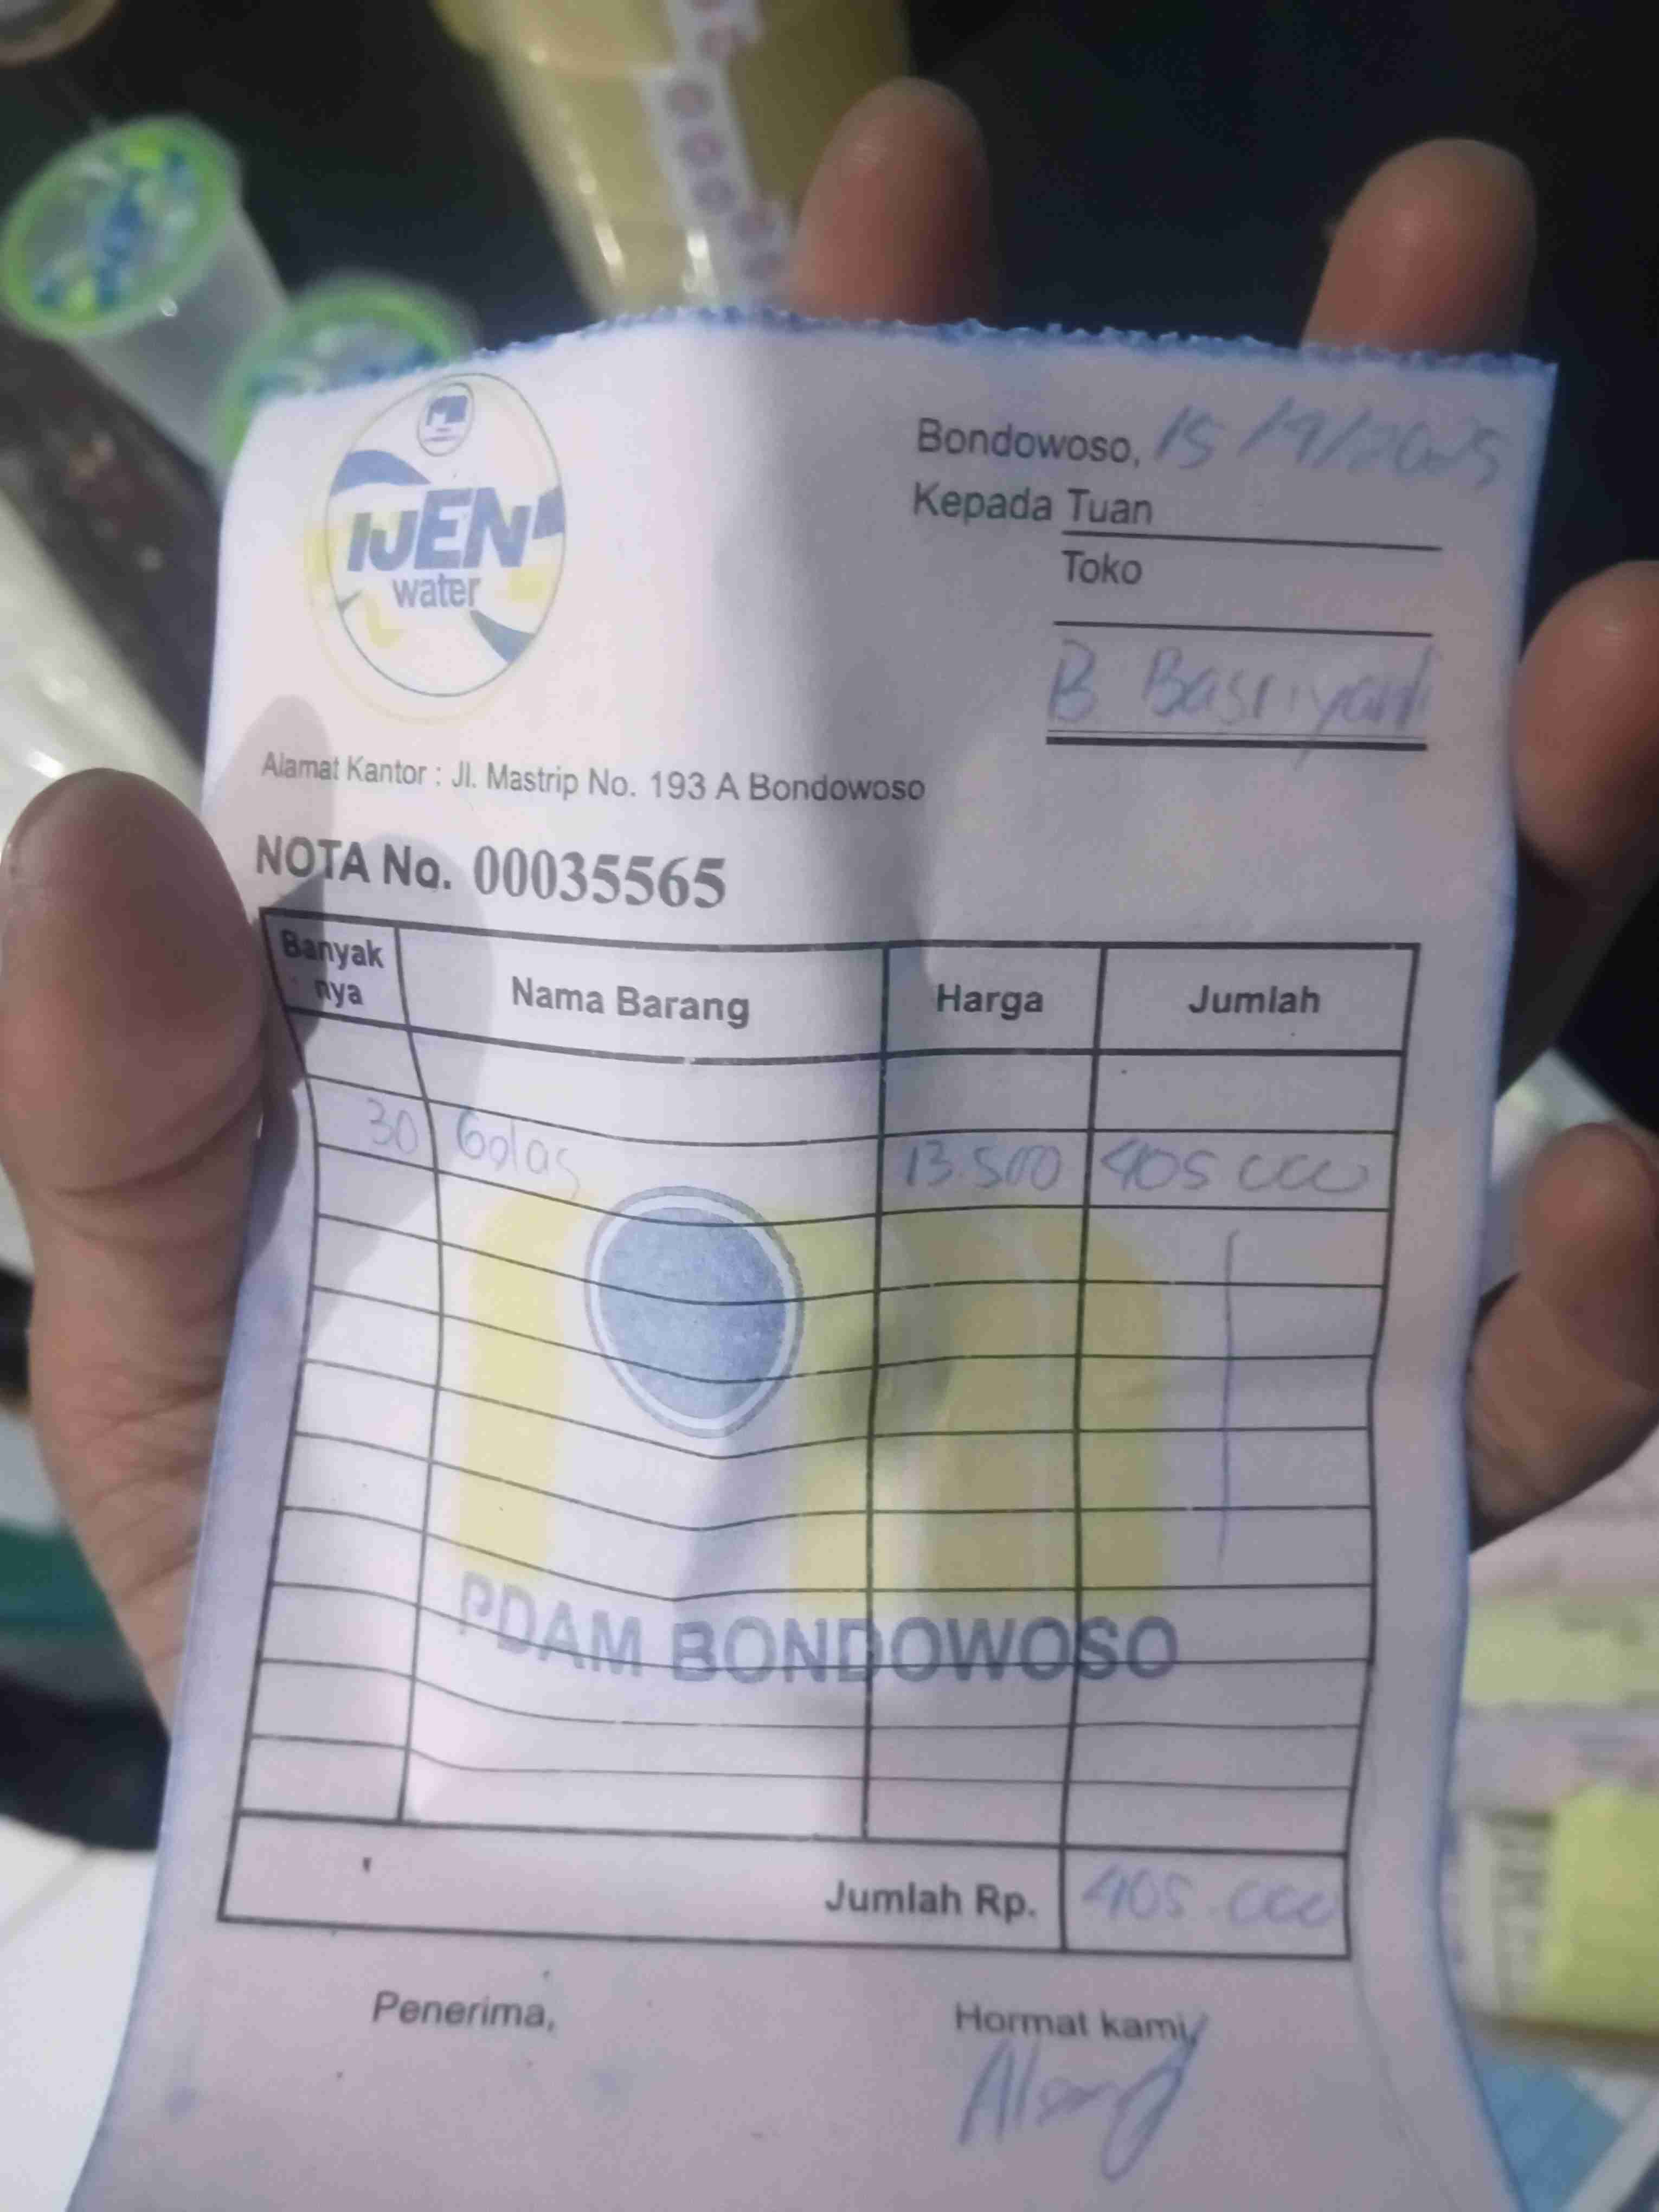 IJEN
water
Bondowoso, 15/9/2025
Kepada Tuan
Toko
B Basriyadi
Alamat Kantor : Jl. Mastrip No. 193 A Bondowoso
NOTA No. 00035565
Banyak nya Nama Barang Harga Jumlah
30 Gelas 13.500 405 000
PDAM BONDOWOSO
Jumlah Rp. 405.000
Penerima, Hormat kami,